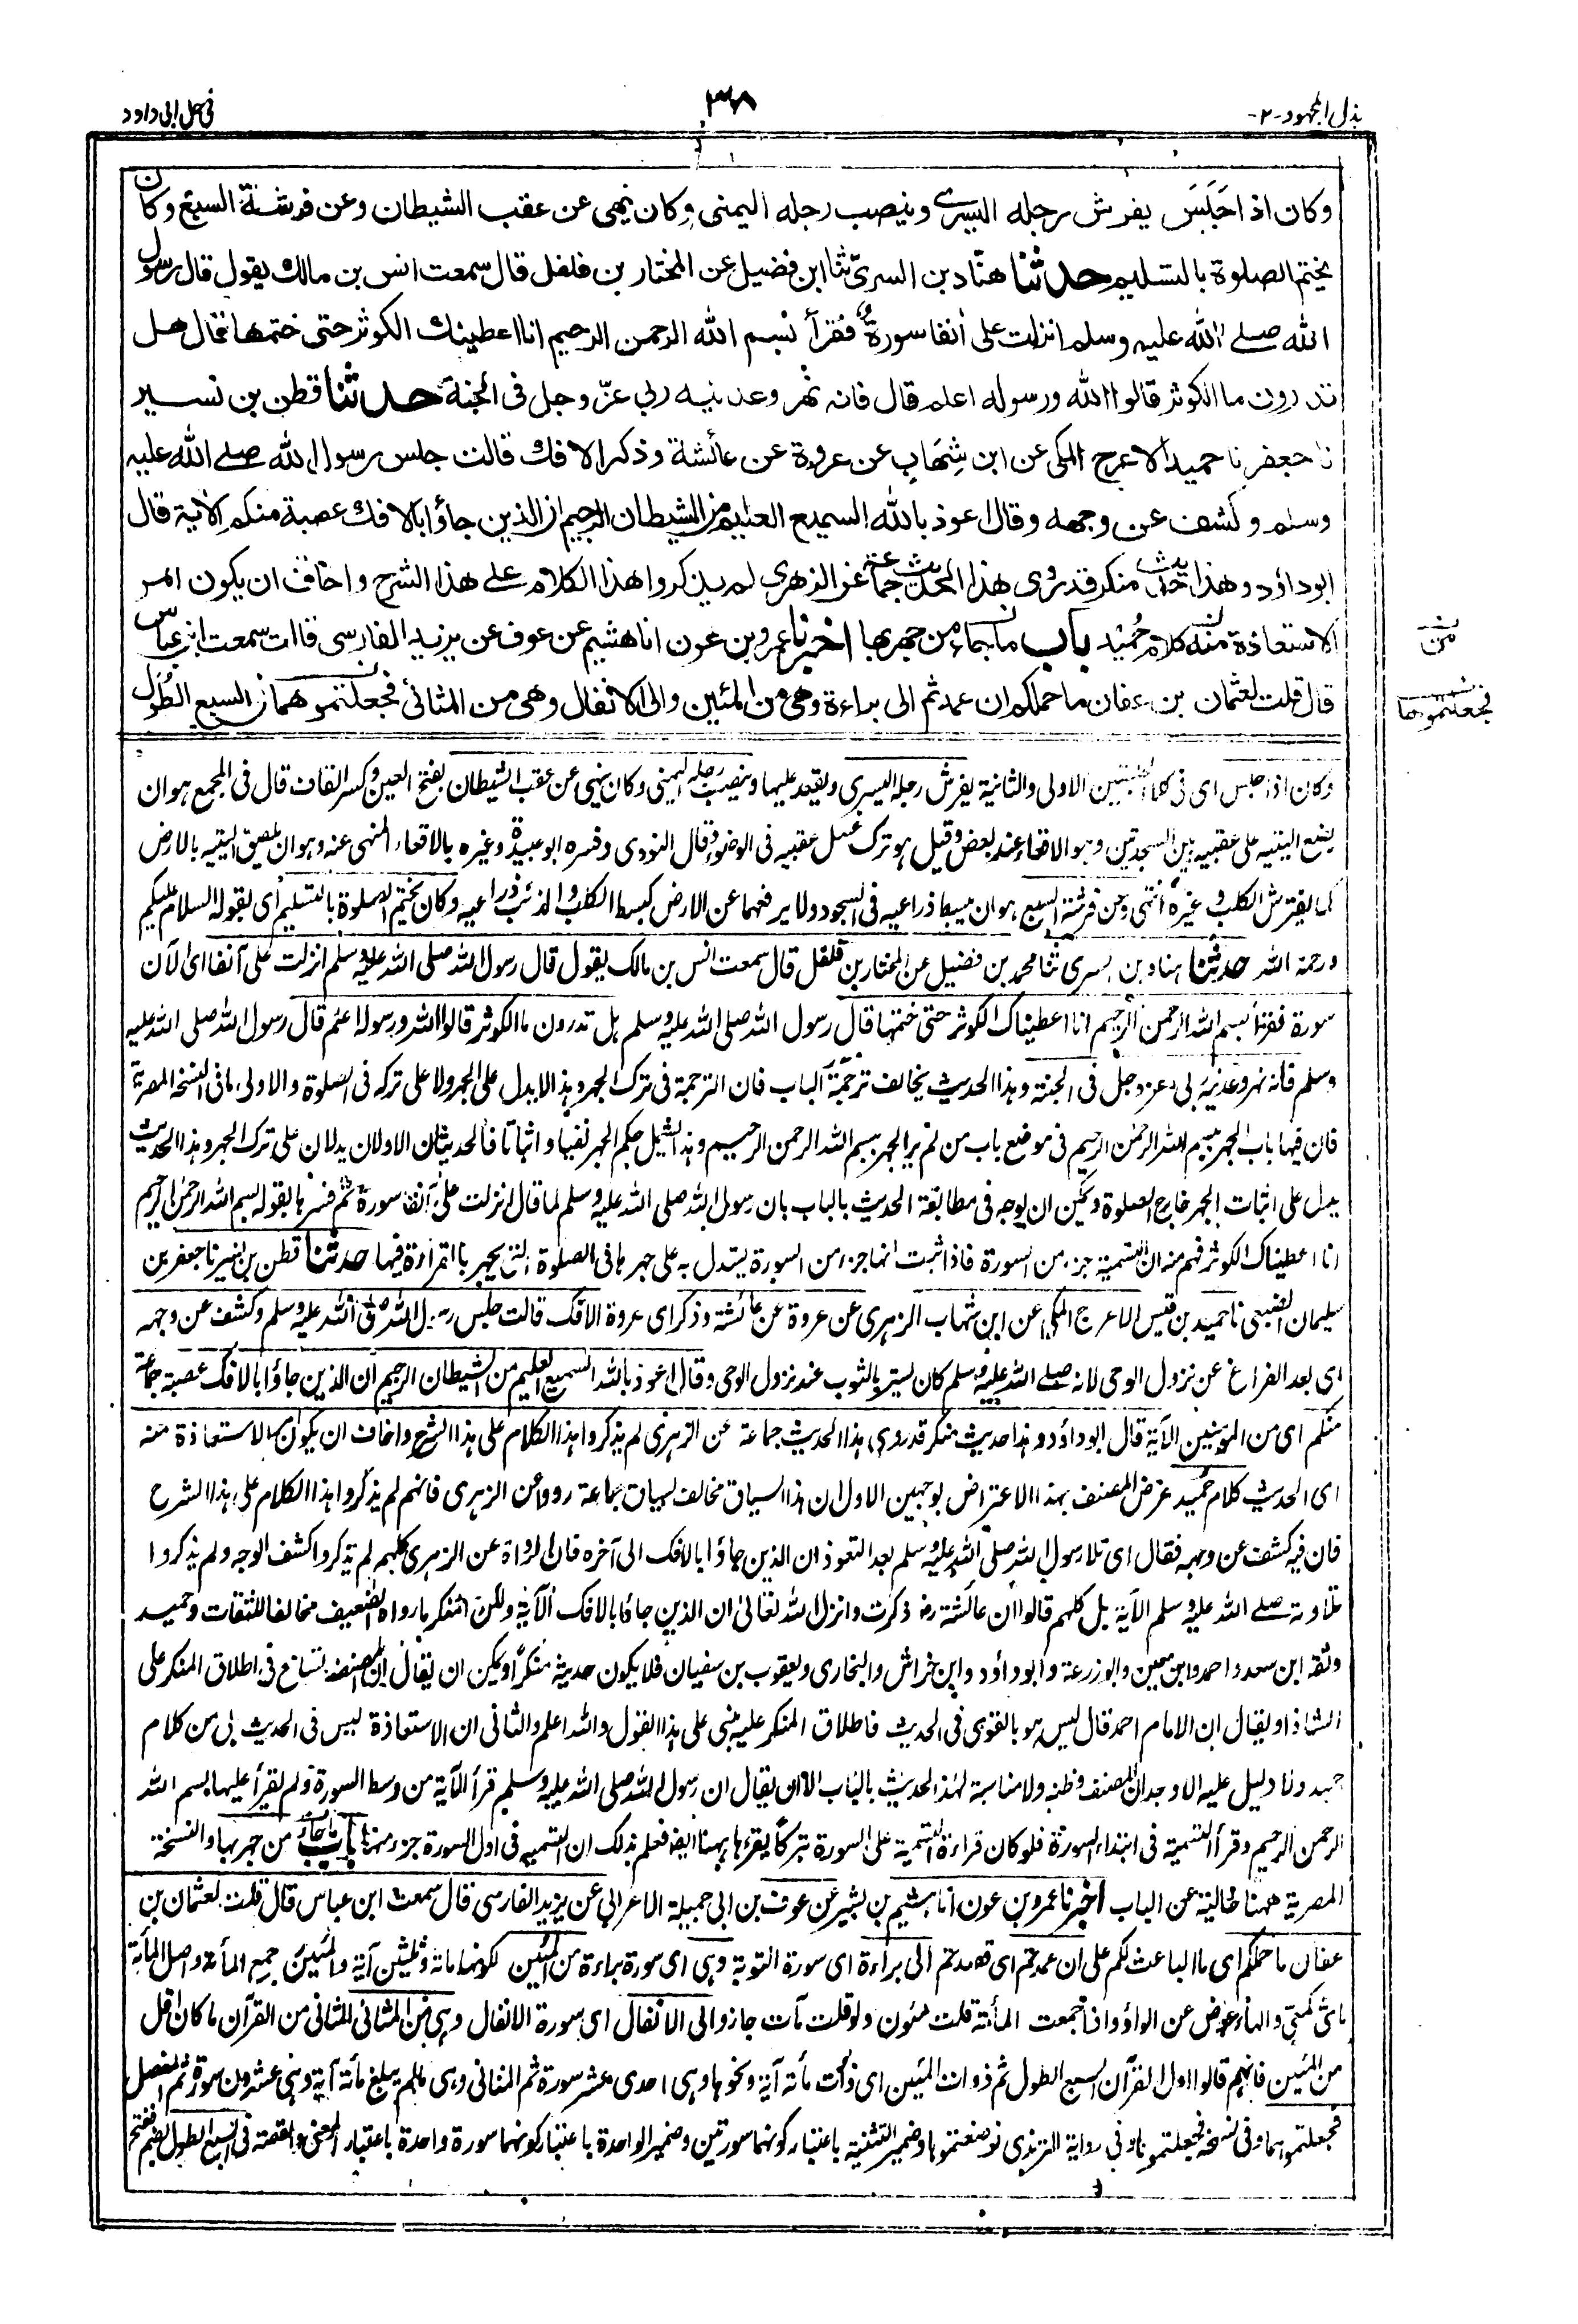 بذل المجهود -٢-
٣٨
فى حل ابى داود
وكان اذا جَلَسَ يفرش رجله اليسرى وينصب رجله اليمنى وكان ينهى عن عقب الشيطان وعن فرشة السبع وكان
يختم الصلوة بالتسليم حدثنا هنّاد بن السرىّ ثنا ابن فضيل عن المختار بن فلفل قال سمعت انس بن مالك يقول قال رسول
الله صلے الله عليه وسلم انزلت على آنفا سورة فقرأ بسم الله الرحمن الرحيم انا اعطينك الكوثر حتى ختمها فقال هل
تدرون ما الكوثر قالوا الله ورسوله اعلم قال فانه نهر وعدنيه ربي عزّ وجل فى الجنة حدثنا قطن بن نسير
نا جعفر نا حميد الاعرج المكى عن ابن شِهَاب عن عروة عن عائشة وذكر الافك قالت جلس رسول الله صلے الله عليه
وسلم وكشف عن وجهه وقال اعوذ بالله السميع العليم من الشيطان الرجيم ان الذين جاؤا بالافك عصبة منكم الآية قال
ابوداؤد وهذا حديث منكر قد روى هذا الحديث جماعة عن الزهرى لم يذكروا هذا الكلام على هذا الشرح واخاف ان يكون امر
الاستعاذة منه كلام حُمَيْد باب ما جاء من جهر بها اخبرنا عمرو بن عون انا هشيم عن عوف عن يزيد الفارسى قال سمعت ابن عباس
قال قلت لعثمان بن عفان ما حملكم ان عمدتم الى براءة وهى من المئين والى الانفال وهى من المثانى فجعلتموهما فى السبع الطُوَل
من
فجعلتموها
وكان اذا جلس اى فى الجلستين الاولى والثانية يفرش رجله اليسرى ويقعد عليها وينصب رجله اليمنى وكان ينهى عن عقب الشيطان بفتح العين وكسر القاف قال فى المجمع هو ان
يضع اليتيه على عقبيه بين السجدتين وهو الاقعاء عند بعض وقيل هو ترك غسل عقبيه فى الوضوء قال النووى وفسره ابو عبيدة وغيره بالاقعاء المنهى عنه وهو ان يلصق اليتيه بالارض
كما يفترش الكلب وغيره انتهى وعن فرشة السبع هو ان يبسط ذراعيه فى السجود ولا يرفعهما عن الارض كبسط الكلب والذئب ذراعيه وكان يختم الصلوة بالتسليم اى بقوله السلام عليكم
ورحمة الله حدثنا هناد بن السرى ثنا محمد بن فضيل عن المختار بن فلفل قال سمعت انس بن مالك يقول قال رسول الله صلى الله عليه وسلم انزلت على آنفا اى الآن
سورة فقرأ بسم الله الرحمن الرحيم انا اعطيناك الكوثر حتى ختمها قال رسول الله صلى الله عليه وسلم هل تدرون ما الكوثر قالوا الله ورسوله اعلم قال رسول الله صلى الله عليه
وسلم فانه نهر وعدنيه ربى عز وجل فى الجنة وهذا الحديث يخالف ترجمة الباب فان الترجمة فى ترك الجهر وهذا لا يدل على الجهر ولا على تركه فى الصلوة والاولى ما فى النسخة المصرية
فان فيها باب الجهر ببسم الله الرحمن الرحيم فى موضع باب من لم ير الجهر ببسم الله الرحمن الرحيم وهذا يشمل حكم الجهر نفيا واثباتا فالحديثان الاولان يدلان على ترك الجهر وهذا الحديث
يدل على اثبات الجهر خارج الصلوة ويمكن ان يوجه فى مطابقة الحديث بالباب بان رسول الله صلى الله عليه وسلم لما قال انزلت على آنفا سورة ثم فسرها بقوله بسم الله الرحمن الرحيم
انا اعطيناك الكوثر فهم منه ان التسمية جزء من السورة فاذا ثبت انها جزء من السورة يستدل به على جهرها فى الصلوة التى يجهر بالقراءة فيها حدثنا قطن بن نسير نا جعفر بن
سليمان الضبعى نا حميد بن قيس الاعرج المكى عن ابن شهاب الزهرى عن عروة عن عائشة وذكر اى عروة الافك قالت جلس رسول الله صلى الله عليه وسلم وكشف عن وجهه
اى بعد الفراغ عن نزول الوحى لانه صلے الله عليه وسلم كان يستر بالثوب عند نزول الوحى وقال اعوذ بالله السميع العليم من الشيطان الرجيم ان الذين جاؤا بالافك عصبة جماعة
منكم اى من المؤمنين الآية قال ابوداؤد وهذا حديث منكر قد روى هذا الحديث جماعة عن الزهرى لم يذكروا هذا الكلام على هذا الشرح واخاف ان يكون الاستعاذة منه
اى الحديث كلام حُميد غرض المصنف بهذا الاعتراض بوجهين الاول ان هذا السياق مخالف لسياق جماعة رووا عن الزهرى فانهم لم يذكروا هذا الكلام على هذا الشرح
فان فيه كشف عن وجهه فقال اى تلا رسول الله صلى الله عليه وسلم بعد التعوذ ان الذين جاؤا بالافك الى آخره فان الرواة عن الزهرى كلهم لم يذكروا كشف الوجه ولم يذكروا
تلاوته صلے الله عليه وسلم الآية بل كلهم قالوا ان عائشة رض ذكرت وانزل الله تعالى ان الذين جاؤا بالافك الآية ولكن المنكر ما رواه الضعيف مخالفا للثقات وحميد
وثقه ابن سعد واحمد وابن معين وابو زرعة وابوداؤد وابن خراش والبخارى ويعقوب بن سفيان فلا يكون حديثه منكرًا ويمكن ان يقال ان المصنف تسامح فى اطلاق المنكر على
الشاذ او يقال ان الامام احمد قال ليس هو بالقوى فى الحديث فاطلاق المنكر عليه مبنى على هذا القول والله اعلم والثانى ان الاستعاذة ليس فى الحديث بل من كلام
حميد ولا دليل عليه الا وجدان المصنف وظنه ولا مناسبة لهذا الحديث بالباب الا ان يقال ان رسول الله صلى الله عليه وسلم قرأ الآية من وسط السورة ولم يقرأ عليها بسم الله
الرحمن الرحيم وقرأ التسمية فى ابتداء السورة فلو كان قراءة التسمية على السورة تبركًا يقرءها ههنا ايضا فعلم بذلك ان التسمية فى اول السورة جزء منها باب ما جاء من جهر بها والنسخة
المصرية ههنا خالية عن الباب اخبرنا عمرو بن عون انا هشيم بن بشير عن عوف بن ابى جميلة الاعرابى عن يزيد الفارسى قال سمعت ابن عباس قال قلت لعثمان بن
عفان ما حملكم اى ما الباعث لكم على ان عمدتم اى قصدتم الى براءة اى سورة التوبة وهى اى سورة براءة من المئين لكونها مائة وثلثين آية والمئين جمع المأة واصل المأة
مأى كمعى والهاء عوض عن الواو واذا جمعت المأة قلت مئون ولو قلت مآت جاز والى الانفال اى سورة الانفال وهى من المثانى المثانى من القرآن ما كان اقل
من المئين فانهم قالوا اول القرآن السبع الطول ثم ذوات المئين اى ذات مأة آية ونحوها وهى احدى عشر سورة ثم المثانى وهى ما لم يبلغ مأة آية وهى عشرون سورة ثم المفصل
فجعلتموهما وفى نسخة فجعلتموها وفى رواية الترمذى فوضعتموها وضمير التثنية باعتبار كونهما سورتين وضمير الواحدة باعتبار كونهما سورة واحدة باعتبار المعنى والقصة فى السبع الطول بضم ففتح